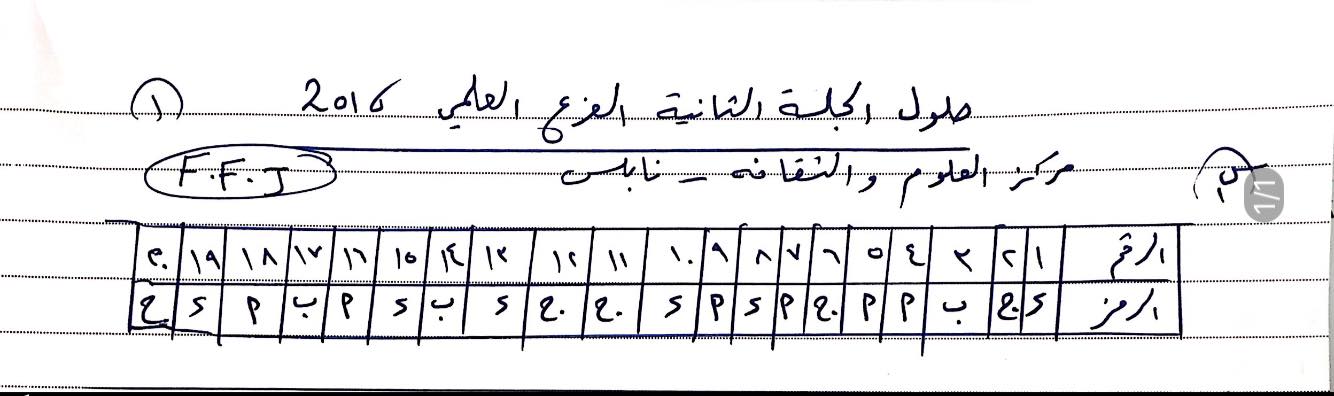 حلول الجلسة الثانية الفرع العلمي 2016 ①
مركز العلوم والثقافة - نابلس F.F.J
س١
1/1
الرقم ١ ٢ ٣ ٤ ٥ ٦ ٧ ٨ ٩ ١٠ ١١ ١٢ ١٣ ١٤ ١٥ ١٦ ١٧ ١٨ ١٩ ٢٠
الرمز د ج ب م م ج م د م د ج ج د ب د م ب م د ج